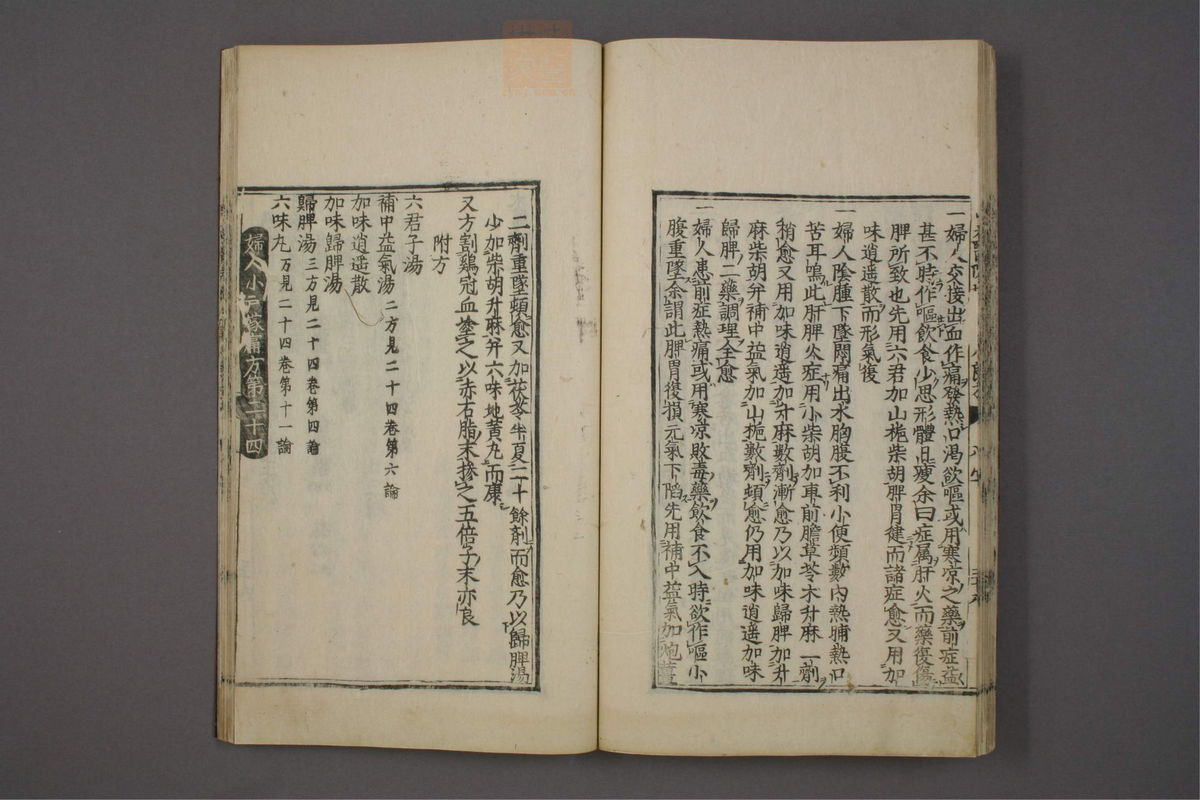 一婦人交接出血作痛發熱口渴欲嘔或用寒凉之藥前症益
甚不時作嘔飲食少思形體日瘦余曰症属肝火而藥復傷
脾所致也先用六君加山梔柴胡脾胃健而諸症愈又用加
味逍遥散而形氣復
一婦人陰腫下墜悶痛出水胸腹不利小便頻數內熱晡熱口
苦耳鳴此肝脾火症用小柴胡加車前膽草苓木升麻一劑
稍愈又用加味逍遥加升麻數劑漸愈乃以加味歸脾加升
麻柴胡并補中益氣加山梔數劑頓愈仍用加味逍遥加味
歸脾二藥調理全愈
一婦人患前症熱痛或用寒凉敗毒藥飲食不入時欲作嘔小
腹重墜余謂此脾胃復損元氣下陷先用補中益氣加炮薑
二劑重墜頓愈又加茯苓半夏二十餘剤而愈乃以歸脾湯
少加柴胡升麻并六味地黄丸而康
又方割鷄冠血塗之以赤石脂末摻之五倍子末亦良
附方
六君子湯
補中益氣湯二方見二十四卷第六論
加味逍遥散
加味歸脾湯
歸脾湯三方見二十四卷第四論
六味丸方見二十四卷第十一論
婦人小戸嫁痛方第二十四